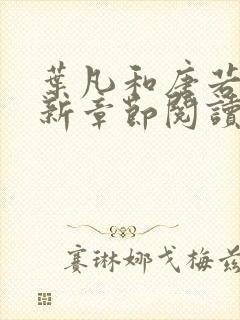 葉凡和唐若
新章節閱讀
賽琳娜戈梅茲